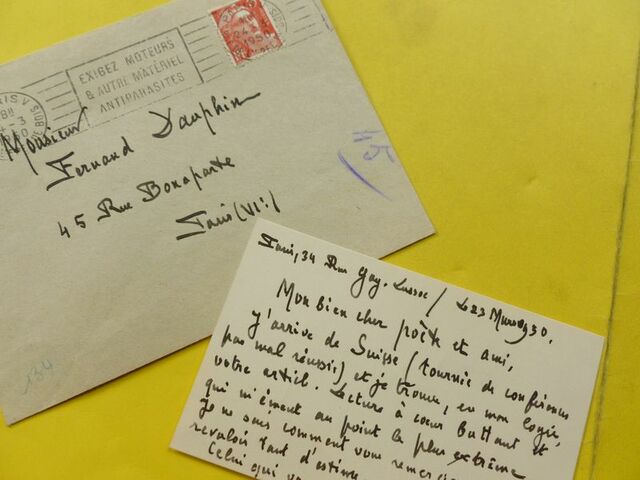 EXIGEZ MOTEURS
& AUTRE MATÉRIEL
ANTIPARASITES
Monsieur
Fernand Dauphin
45 Rue Bonaparte
Paris (VIe)
134
Paris, 34 Rue Gay-Lussac / Le 23 Mars 1950.
Mon bien cher poète et ami,
J'arrive de Suisse (tournée de conférences
pas mal réussie) et je trouve, en mon logis,
votre article. Lecture à cœur battant et
qui m'émeut au point le plus extrême
Je ne sais comment vous remer
revaloir tant d'estime
Celui qui